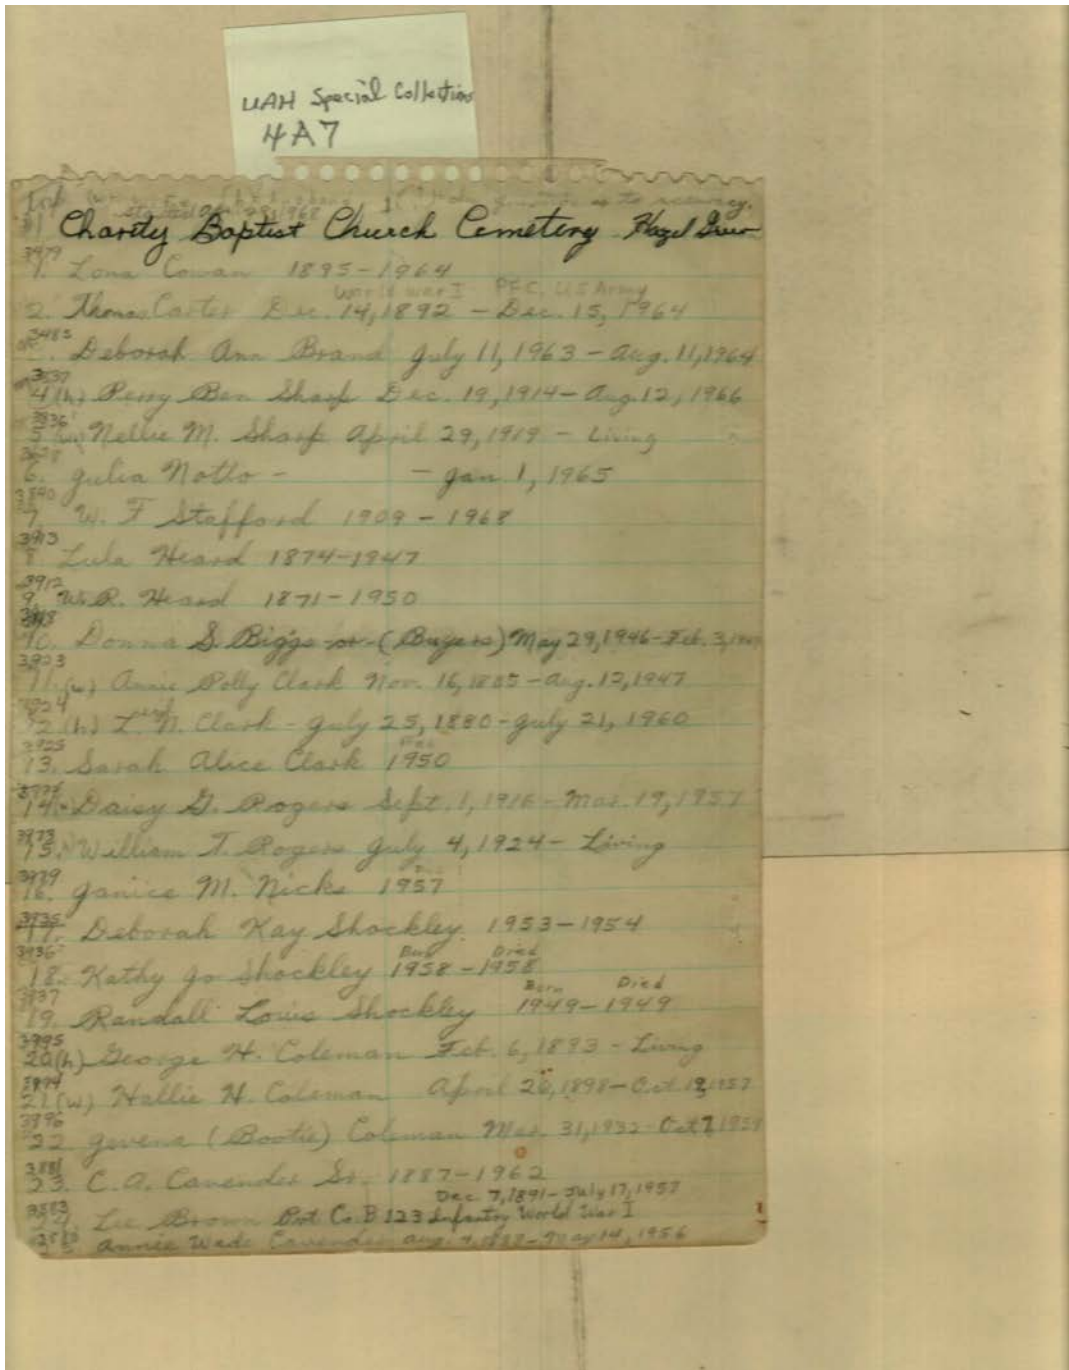 UAH Special Collections
4A7
Started 1968 to accuracy.
#1 Charity Baptist Church Cemetery Hazel Green
3979
1. Lona Cowan 1895-1964
World War I PFC, US Army
2. Thomas Carter Dec. 14, 1892 - Dec. 15, 1964
3485
Deborah Ann Brand July 11, 1963 - Aug. 11, 1964
3537
4 (h) Perry Ben Sharp Dec. 19, 1914 - Aug. 12, 1966
3536
5 (w) Nellie M. Sharp April 29, 1919 - Living
3628
6. Julia Notto - - Jan 1, 1965
3890
7. W. F Stafford 1909 - 1968
3913
8 Lula Heard 1874-1947
3912
9. W.R. Heard 1871-1950
10. Donna S. Biggs or (Buyers) May 29, 1946 - Feb. 3,
3923
11. (w) Annie Polly Clark Nov. 16, 1885 - Aug. 12, 1947
3924
12 (h) N. Clark - July 25, 1880 - July 21, 1960
3925
13. Sarah Alice Clark 1950
14. Daisy G. Rogers Sept. 1, 1916 - Mar. 19, 1957
3973
15. William T. Rogers July 4, 1924 - Living
3979
16. Janice M. Nicks 1957
3935
17. Deborah Kay Shockley 1953-1954
3936 Born Died
18. Kathy Jo Shockley 1958-1958
3937 Born Died
19. Randall Louis Shockley 1949-1949
3995
20 (h) George H. Coleman Feb. 6, 1893 - Living
3994
21 (w) Hallie H. Coleman April 26, 1898 - Oct. 19, 1957
3996
22 Jovena (Bootie) Coleman Mar. 31, 1932 - Oct 7, 1959
3881
23. C.A. Cavender Sr. 1887-1962
Dec 7, 1891 - July 17, 1957
3883
24. Lee Brown Pvt Co. B 123 Infantry World War I
Annie Wade Cavender Aug. - May 14, 1956